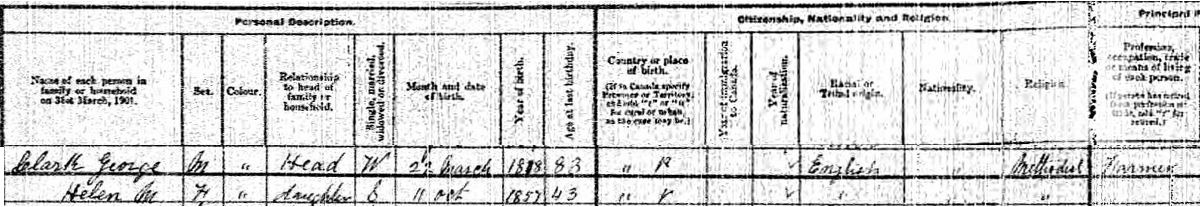 Personal Description.
Citizenship, Nationality and Religion.
Principal
Name of each person in
family or household
on 31st March, 1901.
Sex.
Colour.
Relationship
to head of
family or
household.
Single, married,
widowed or divorced.
Month and date
of birth.
Year of birth.
Age at last birthday.
Country or place
of birth.
(If in Canada specify
Province or Territory,
and add "r" or "u"
for rural or urban,
as the case may be.)
Year of immigration
to Canada.
Year of
naturalization.
Racial or
Tribal origin.
Nationality.
Religion.
Profession,
occupation, trade
or means of living
of each person.
(If person has retired
from profession or
trade, add "r" for
retired.)
Clark George M " Head W 22 March 1818 83 " R ✓ English " Methodist Farmer
Helen M F " daughter S 11 Oct 1857 43 " r ✓ " " "